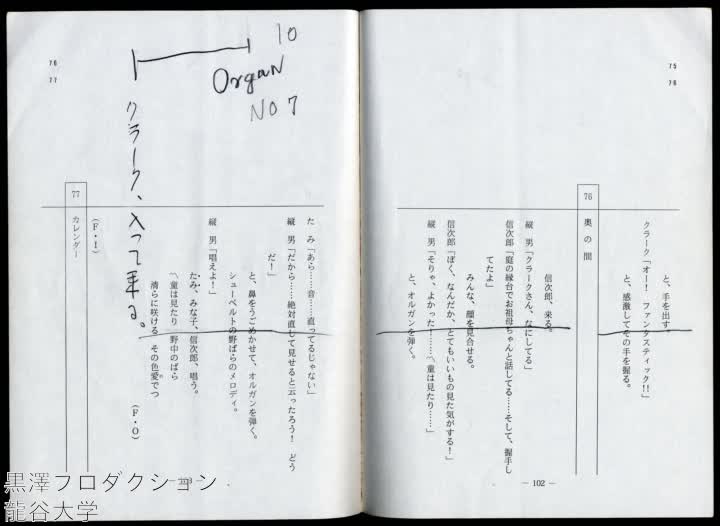 75
76
と、手を出す。
クラーク「オー！　ファンタスティック!!」
と、感激してその手を握る。
76
奥の間
信次郎、来る。
縦　男「クラークさん、なにしてる」
信次郎「庭の縁台でお祖母ちゃんと話してる……そして、握手し
てたよ」
みんな、顔を見合せる。
信次郎「ぼく、なんだか、とてもいいもの見た気がする！」
縦　男「そりゃ、よかった！……〽童は見たり……」
と、オルガンを弾く。
— 102 —
10
Organ
NO 7
76
77
たみ「あら……音……直ってるじゃない」
縦　男「だから……絶対直して見せると云ったろう！　どう
だ！」
と、鼻をうごめかせて、オルガンを弾く。
シューベルトの野ばらのメロディ。
縦　男「唱えよ！」
たみ、みな子、信次郎、唱う。
〽童は見たり　野中のばら
清らに咲ける　その色愛でつ
（F・O）
クラーク、入って来る。
（F・I）
77
カレンダー
— 103 —
黒澤プロダクション
龍谷大学